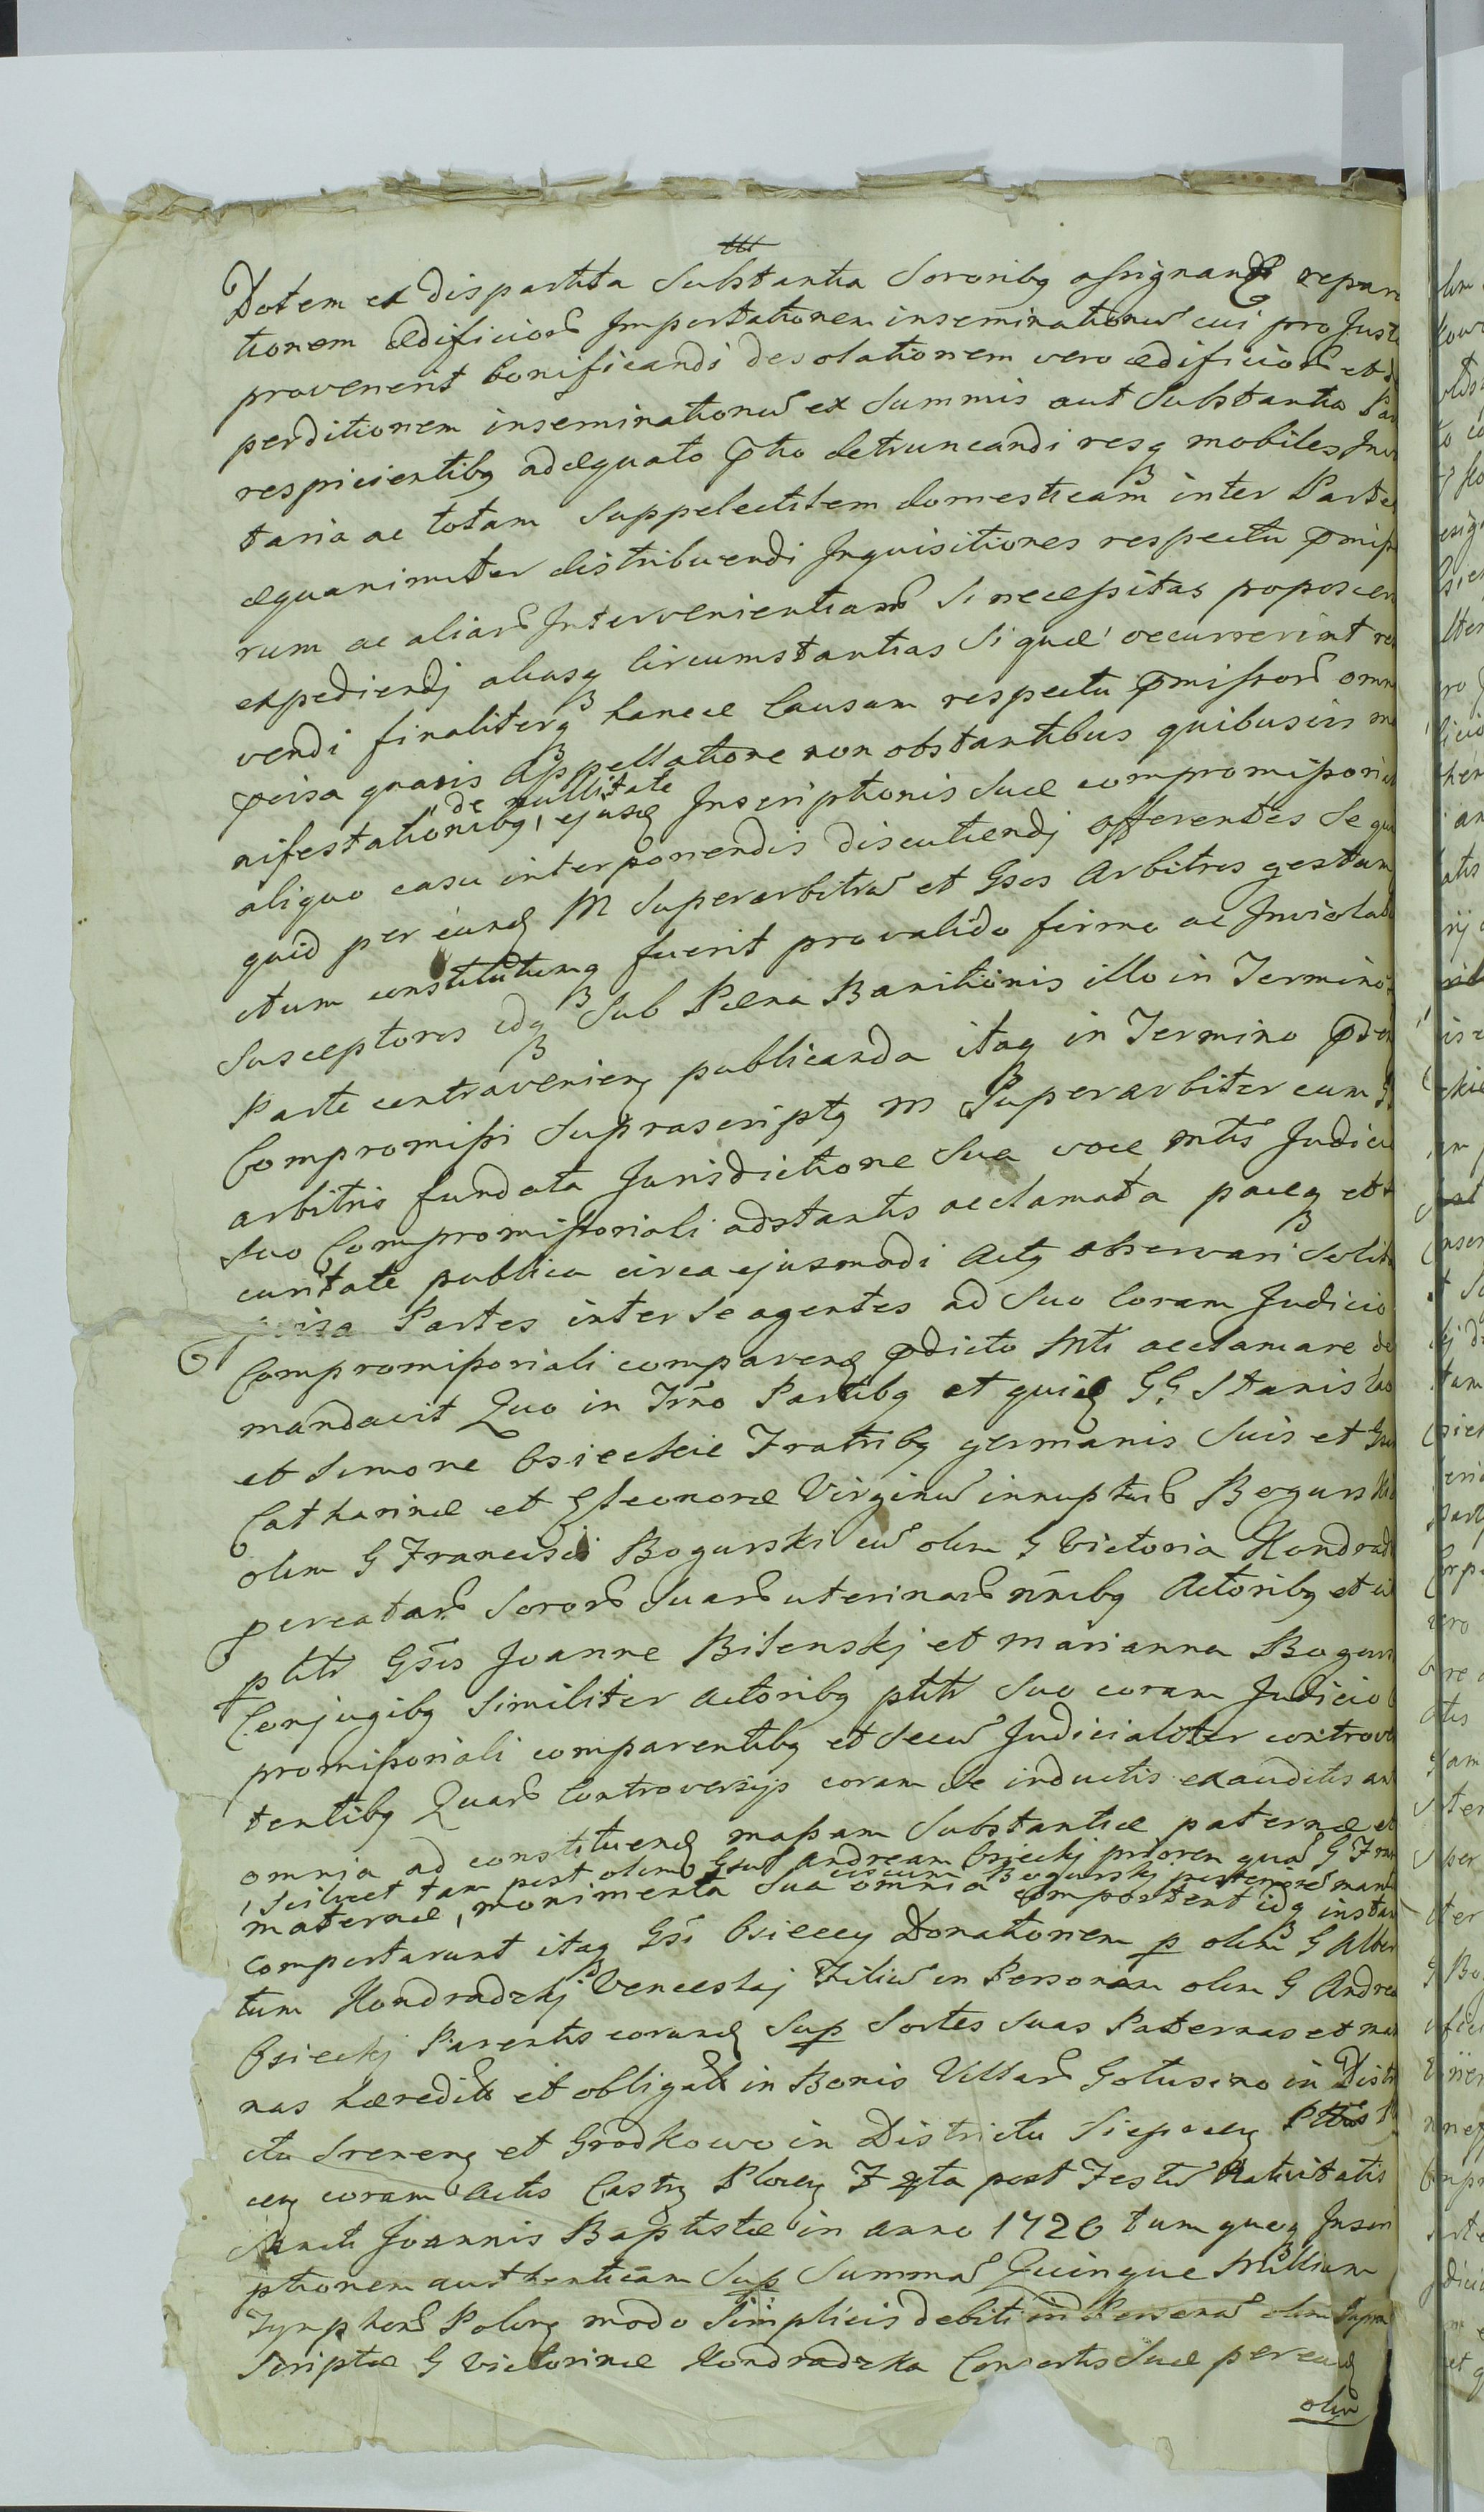 Dotem ex dispartita Substantia Sororibq assignand repara
tionem ædificior Impertationem inseminationũ cui pro Juste
provenerit bonificandi desolationem vero ædificior et
perditionem inseminationũ ex Summis aut Substantia Par
respicientibq adæquato detruncandi resq mobiles Inv
taria ac totam Suppelectilem domesticam inter Partes
æquanimiter distribuendi Inquisitiones respectu pmiss
rum ac aliar Intervenientiar Si necessitas poposcer
expediendj aliasq Circumstantias Si quæ occurrerint re
vendi finaliterq hancce Causam respectu pmissor omni
pcisa quavis Appellatione non obstantibus quibusvis ma
nifestationibq, de nullitate ejusd Inscriptionis Suæ compromissoria
aliquo casu interponendis discutiendj offerentes Se qui
quid per eund M Superarbitrũ et Gsos Arbitros gestum
ctum constitutumq fuerit pro valido firmo ac Inviolab
Suscepturos idq Sub Pæna Banitionis illo in Termino
Parte contravenien publicanda itaq in Termino
Compromissi Suprascriptq M Superarbiter cum
arbitris fundata Jurisdictione Sua voce mtis Judicio
Suo Compromissoriali adstantis acclamata paceq et
curitate publica circa ejusmodi Actq observari Solita
pcisa Partes inter Se agentes ad Suo Coram Judicio
Compromissoriali comparend pdicto Mti acclamare de
mandavit Quo in Trno Partibq et quid GG Stanislao
et Simone Osieckie Fratribq germanis Suis et Gsar
Catharinæ et Eleonoræ Virginũ innuptar Bogurska
olim G Francisci Bogurski cũ olim G Victoria Kondradz
pcreatar Soror Suar uterinar nnibq Actoribq et
ptitr Gsis Joanne Bilenskj et Marianna Bogurs
Conjugibq Similiter Actoribq ptitr Suo coram Judicio
promissoriali comparentibq et Secũ Judicialiter controver
tentibq Quar Controversijs coram Se inductis exauditis an
omnia ad constituend massam Substantiæ paternæ et
, Scilicet tam post olim Gsũ Andream Osieckj priorem quã G Fran
ciscum Bogurskj posteriorẽ marit
maternæ, monimenta Sua omnia comportent idq instan
comportarunt itaq Gsi Osieccy Donationem p olim G Alber
tum Kondradzkj Venceslaj Filiũ in Personam olim G Andrea
Osieckj Parentis eorund Sup Sortes Suas Paternas et mat
nas hæredit et obligat in Bonis Villar Gotusino in Distr
ctu Sreren et Grodkowo in Districtu Siepcen Pttus
cen coram Actis Castr Plocen F qta post Festũ Nativitatis
Sancti Joannis Baptistæ in Anno 1726 tum quoq Inscri
ptionem authenticam Sup Summã Quinque Millium
Tynphor Polon modo Simplicis debiti in Personã olim Supra
Scriptæ G Victorinæ Kondradzka Consortis Suæ per eund
olim